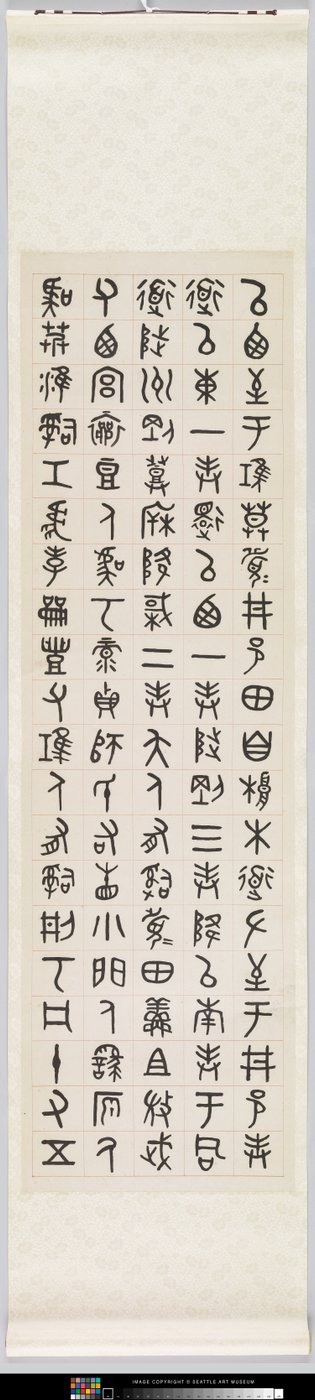 以西至于𤲞莫眉井邑田自桹木道左至于井邑封
道以東一封還以西一封陟剛三封降以南封于同
道陟州剛登柝降棫二封夨人有𤔲眉田鮮且微武
父西宮襄豆人虞丂彔貞師氏右眚小門人繇原人
虞艿淮𤔲工虎孝龠豐父𤲞人有𤔲刑丂凡十又五
IMAGE COPYRIGHT © SEATTLE ART MUSEUM